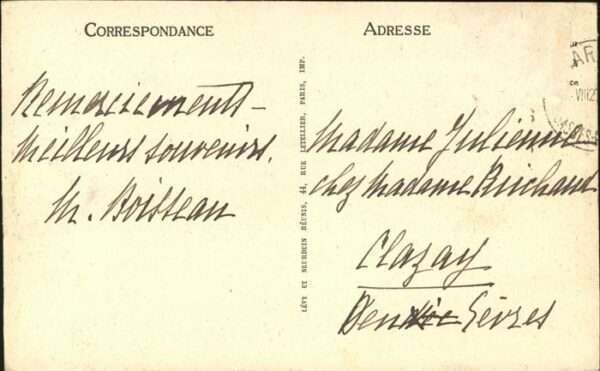 CORRESPONDANCE
Remerciements –
Meilleurs souvenirs.
M. Boisseau
LÉVY ET NEURDEIN RÉUNIS, 44, RUE LETELLIER, PARIS, IMP.
ADRESSE
Madame Julienne
chez Madame Bichaud
Clazay
Sèvres